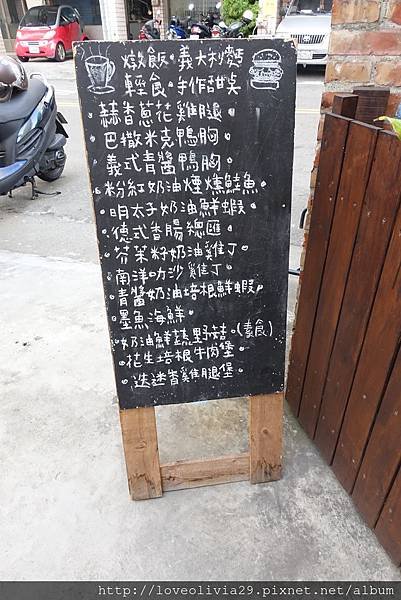 燉飯·義大利麵
輕食·手作甜点
·蒜香蔥花雞腿
·巴撒米克鴨胸
·義式青醬鴨胸
·粉紅奶油煙燻鮭魚
·明太子奶油鮮蝦
·德式香腸總匯
·芥茉籽奶油雞丁
·南洋叻沙雞丁
·青醬奶油培根鮮蝦
·墨魚海鮮
·奶油鮮蔬野菇(素食)
·花生培根牛肉堡
·迷迭香雞腿堡
http://loveolivia29.pixnet.net/album